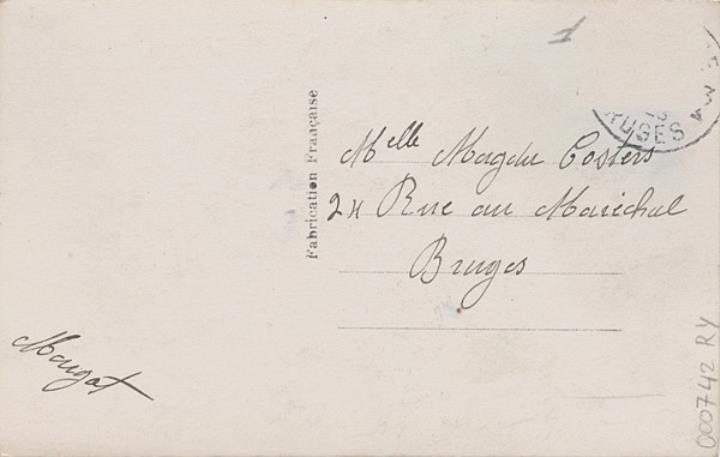 Fabrication Française
BRUGES
Melle Magda Costers
24 Rue au Maréchal
Bruges
Margot
000742 RY